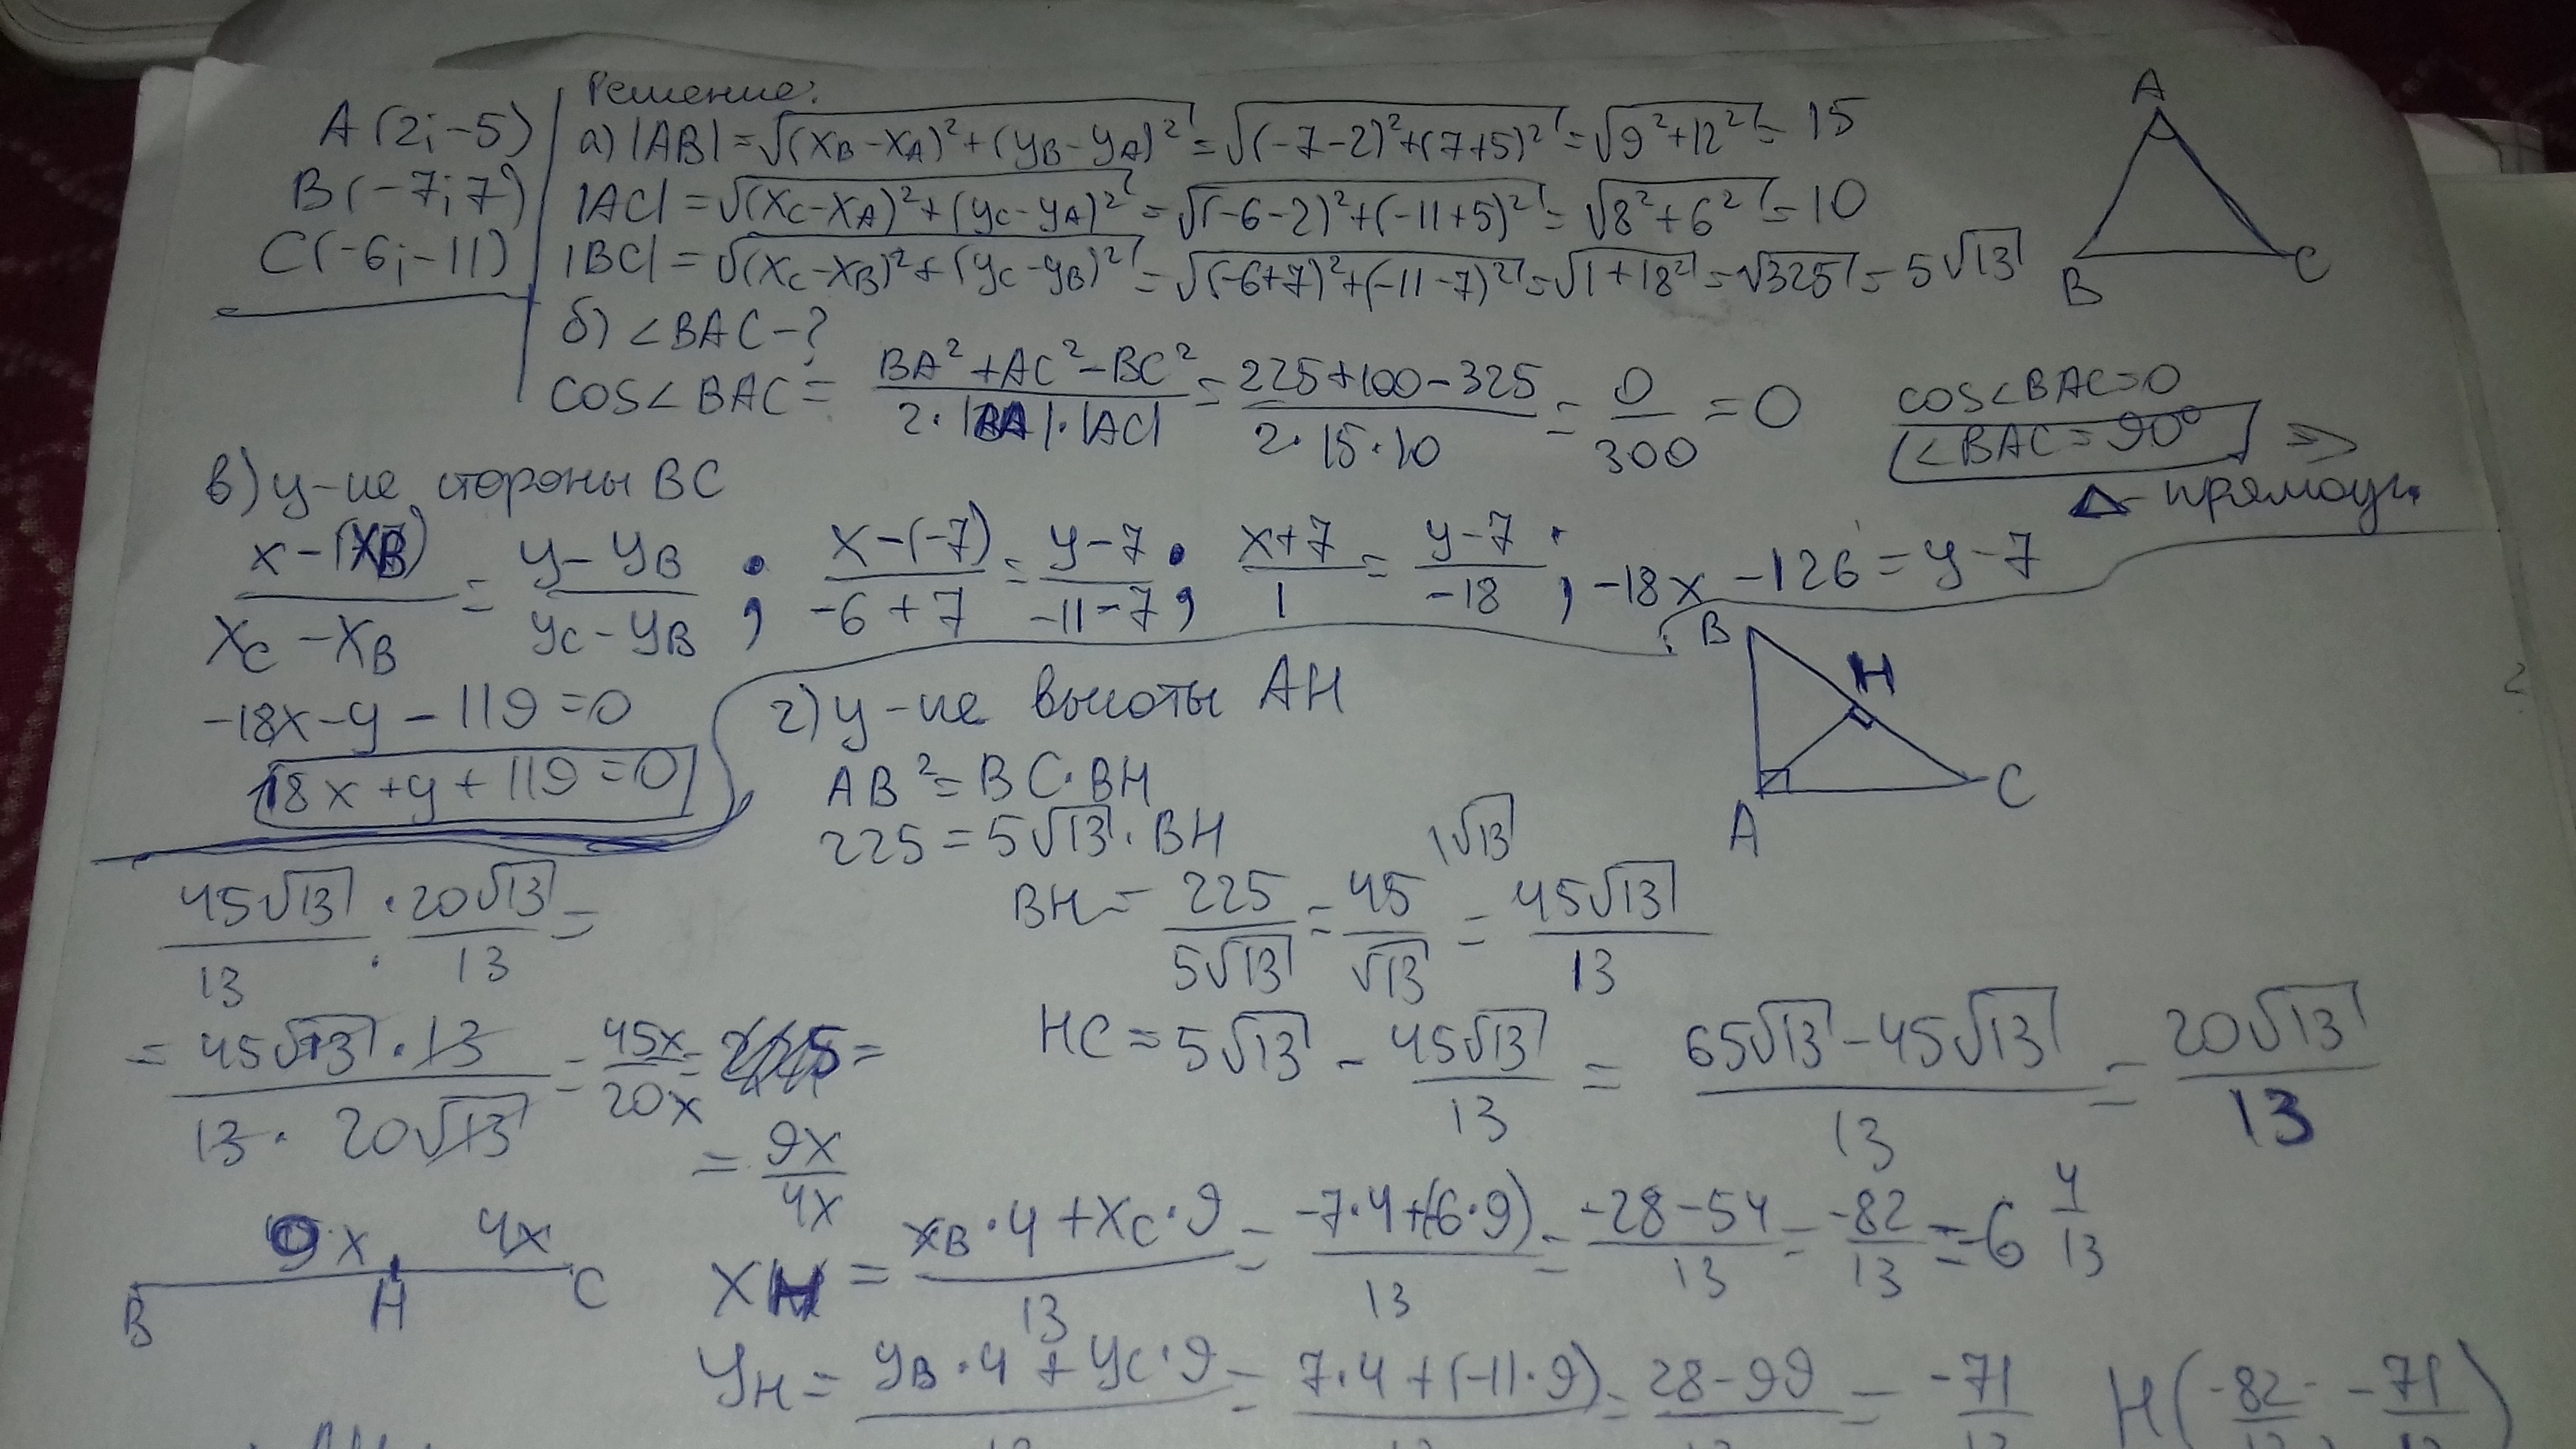 A(2;-5)
B(-7;7)
C(-6;-11)
Решение:
а) |AB| = √((x_B - x_A)² + (y_B - y_A)²) = √((-7-2)² + (7+5)²) = √(9² + 12²) = 15
|AC| = √((x_C - x_A)² + (y_C - y_A)²) = √((-6-2)² + (-11+5)²) = √(8² + 6²) = 10
|BC| = √((x_C - x_B)² + (y_C - y_B)²) = √((-6+7)² + (-11-7)²) = √(1 + 18²) = √325 = 5√13
A
B
C
б) ∠BAC - ?
cos∠BAC = (BA² + AC² - BC²)/(2·|BA|·|AC|) = (225 + 100 - 325)/(2·15·10) = 0/300 = 0
cos∠BAC = 0
∠BAC = 90° =>
△ - прямоуг.
в) у-ие стороны BC
(x - (x_B))/(x_C - x_B) = (y - y_B)/(y_C - y_B) ; (x - (-7))/(-6 + 7) = (y - 7)/(-11 - 7) ; (x + 7)/1 = (y - 7)/(-18) ; -18x - 126 = y - 7
-18x - y - 119 = 0
18x + y + 119 = 0
г) у-ие высоты AH
B
H
A
C
AB² = BC·BH
225 = 5√13 · BH
1√13
BH = 225/(5√13) = 45/√13 = 45√13/13
HC = 5√13 - 45√13/13 = (65√13 - 45√13)/13 = 20√13/13
45√13/13 : 20√13/13 =
= (45√13·13)/(13·20√13) = 45x/20x =
= 9x/4x
9x 4x
B H C
x_H = (x_B·4 + x_C·9)/13 = (-7·4 + (-6·9))/13 = (-28 - 54)/13 = -82/13 = -6 4/13
y_H = (y_B·4 + y_C·9)/13 = (7·4 + (-11·9))/13 = (28 - 99)/13 = -71/13 H(-82/13; -71/13)